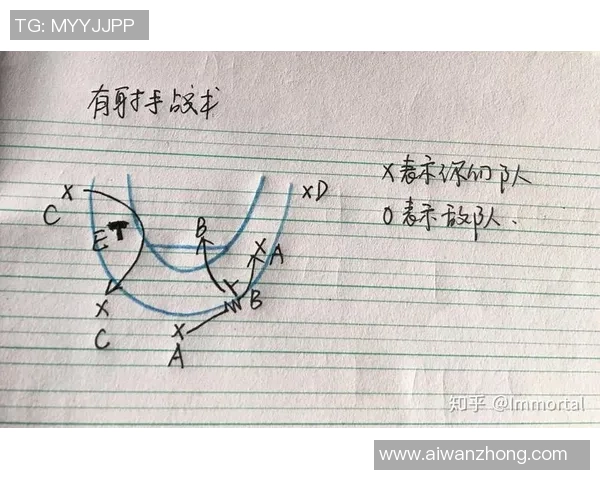 TG: MYYJJPP
有射手战术
X表示你的队
O表示敌队.
X
C
E
X
C
B
X
A
B
X
A
XD
知乎 @Immortal
www.aiwanzhong.com